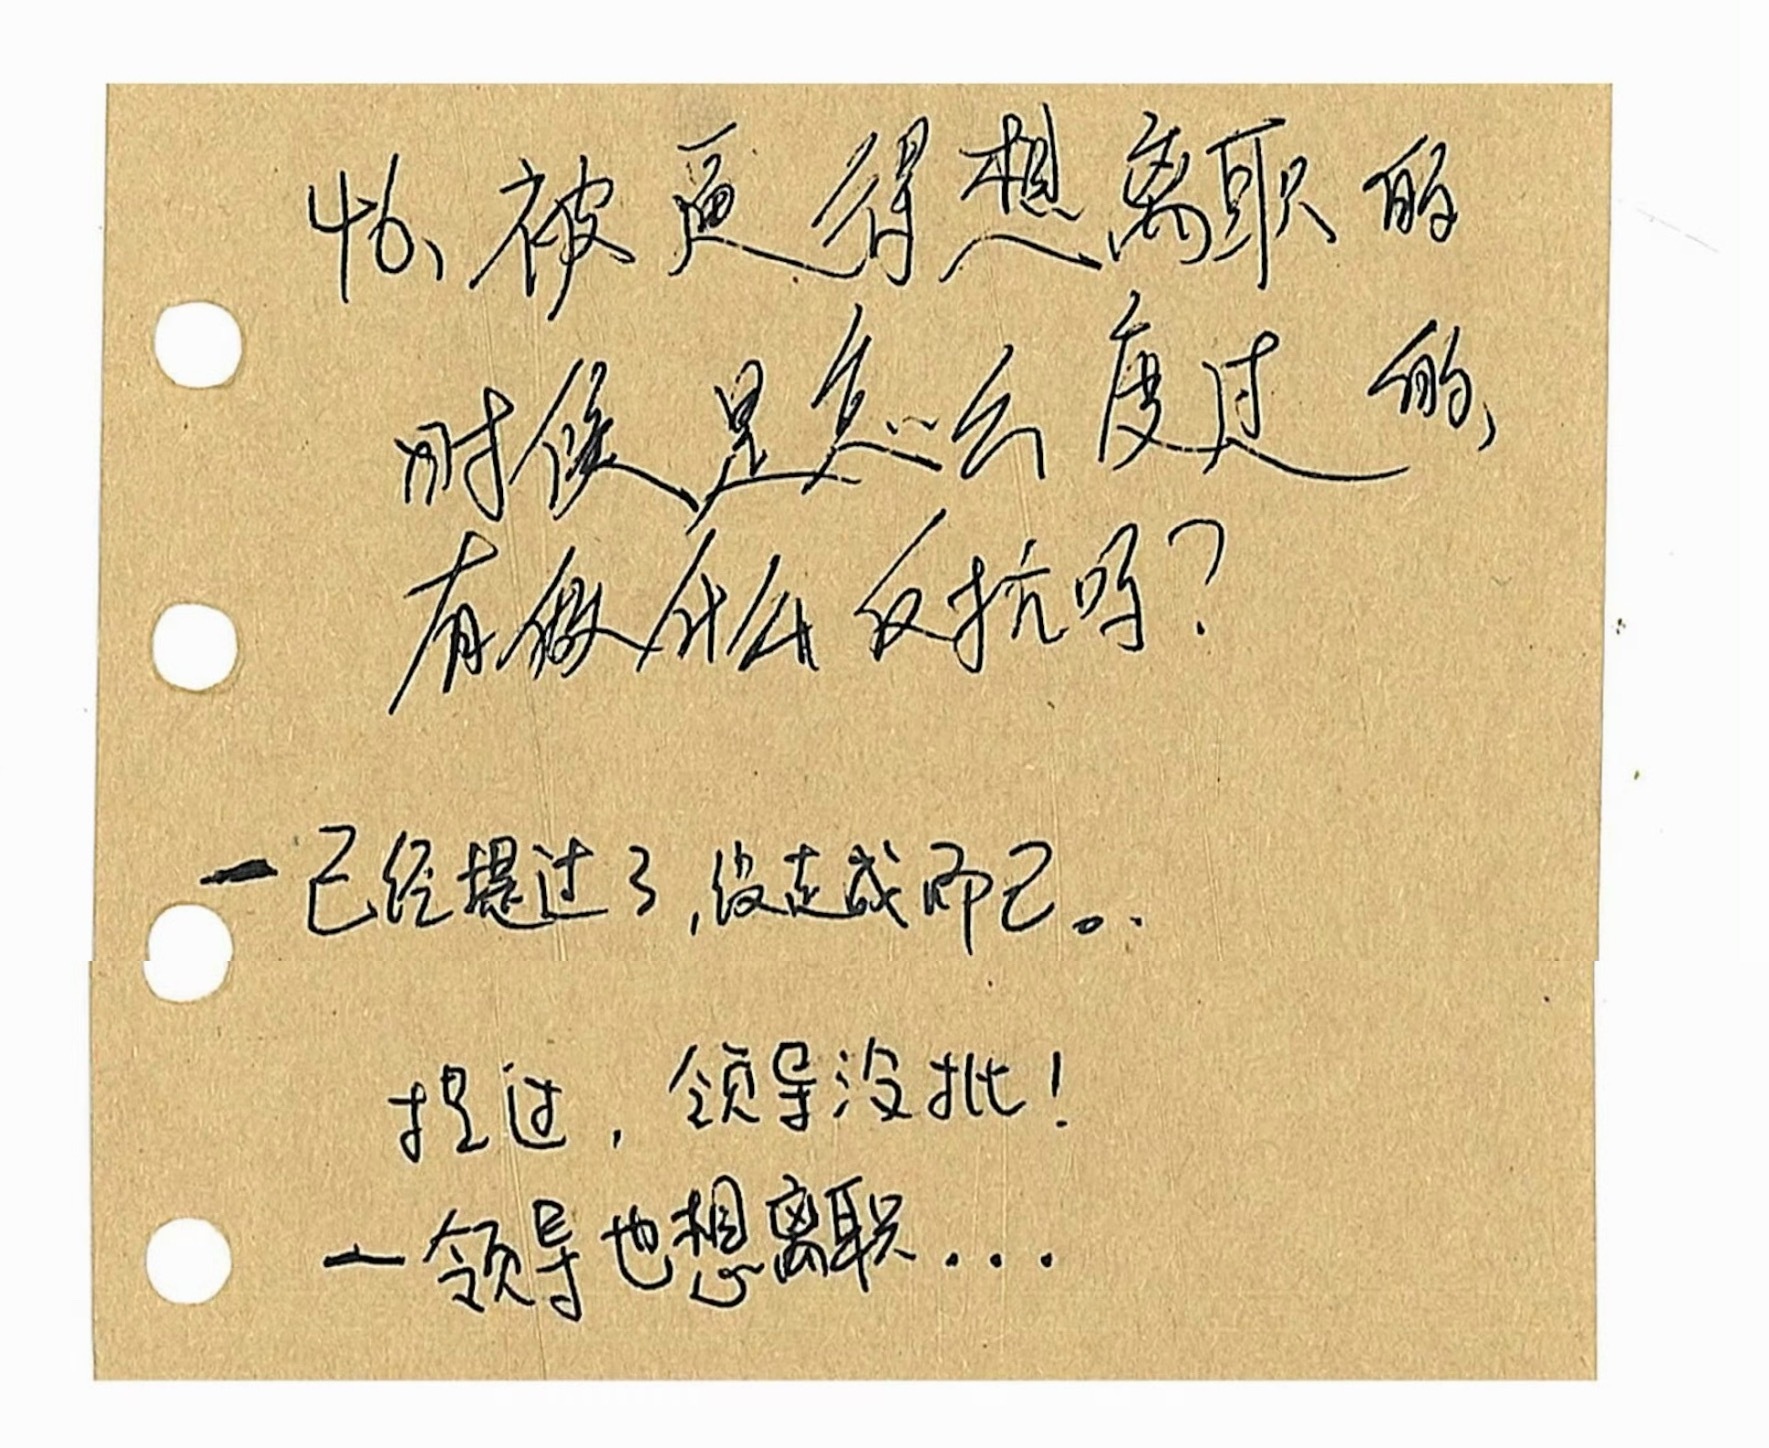 46、被逼得想离职的
时候是怎么度过的,
有做什么反抗吗?
一已经提过了,没走成而已。..
提过,领导没批!
一领导也想离职...